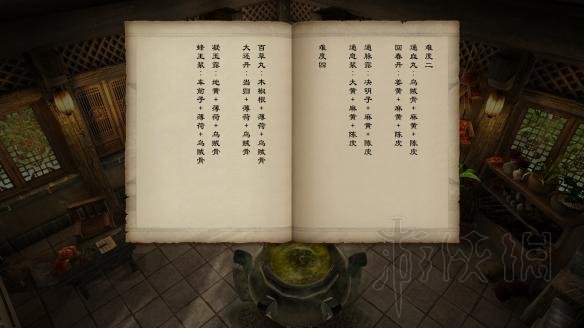 难度二
通血丸:乌贼骨+麻黄+陈皮
回春丹:姜黄+麻黄+陈皮
通脉露:决明子+麻黄+陈皮
通息浆:大黄+麻黄+陈皮
难度四
百草丸:木椒根+薄荷+乌贼骨
大还丹:当归+薄荷+乌贼骨
凝玉露:地黄+薄荷+乌贼骨
蜂王浆:车前子+薄荷+乌贼骨
游侠网